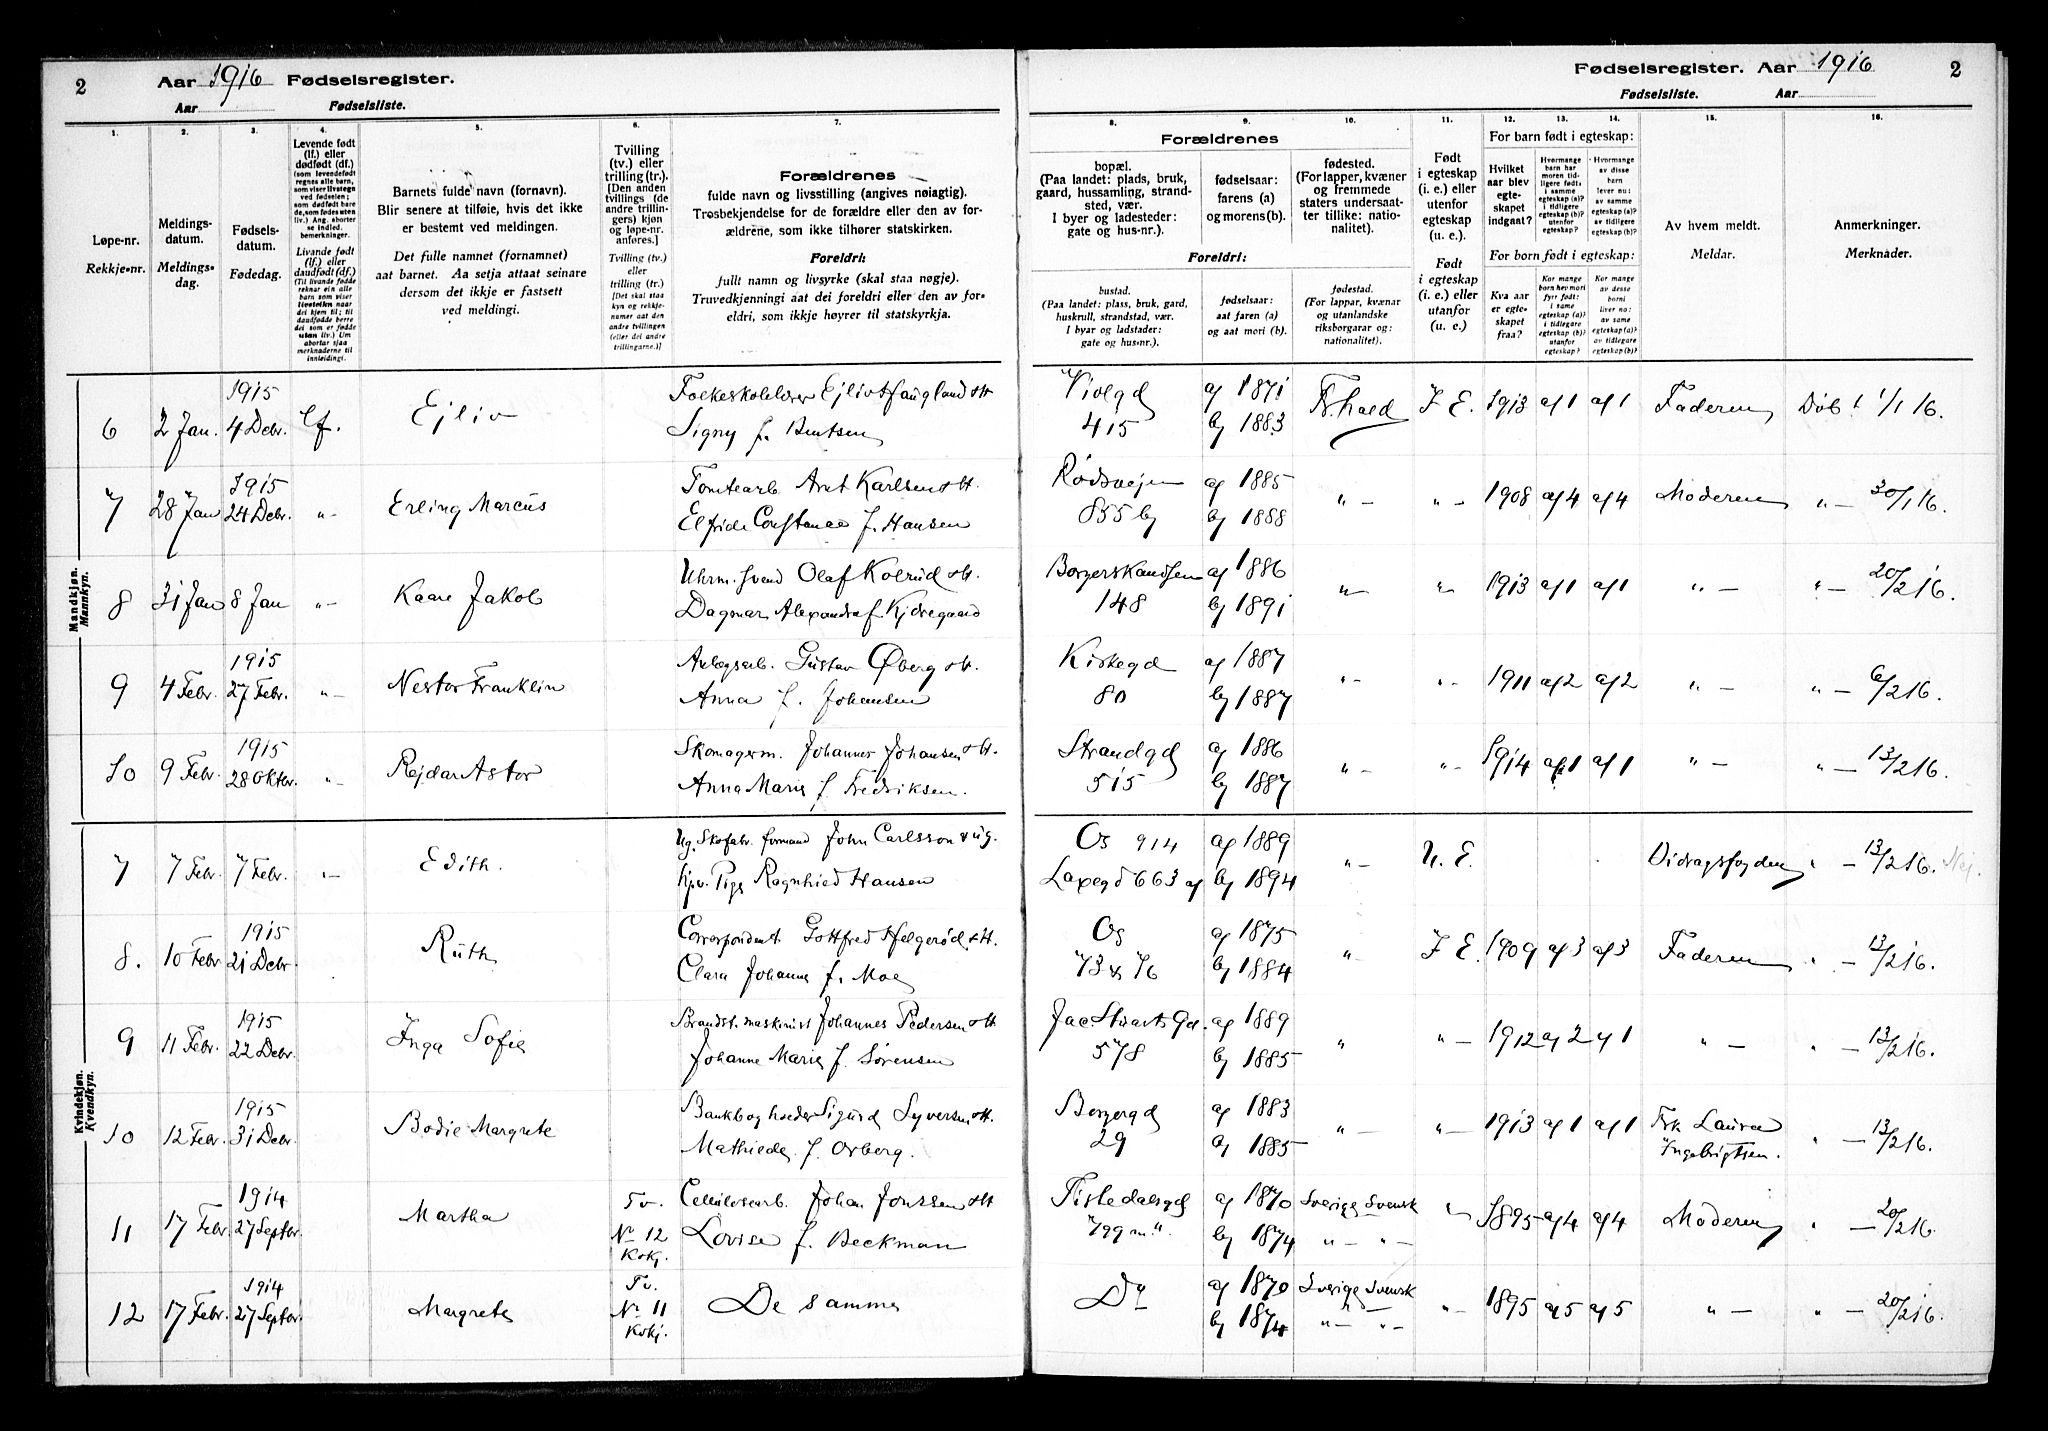 2
Aar 1916 Fødselsregister.
Aar Fødselsliste.
1. 2. 3. 4. 5. 6. 7.
Løpe-nr.
Rekkje-nr.
Meldings-
datum.
Meldings-
dag.
Fødsels-
datum.
Fødedag.
Levende født
(lf.) eller
dødfødt (df.)
Livande født
(lf.) eller
daudfødt (df.)
Barnets fulde navn (fornavn).
Blir senere at tilføie, hvis det ikke
er bestemt ved meldingen.
Det fulle namnet (fornamnet)
aat barnet. Aa setja attaat seinare
dersom det ikkje er fastsett
ved meldingi.
Tvilling
(tv.) eller
trilling (tr.).
[Den anden
tvillings (de
andre trillin-
gers) kjøn
og løpe-nr.
anføres.]
Tvilling (tv.)
eller
trilling (tr.)
Forældrenes
fulde navn og livsstilling (angives nøiagtig).
Trosbekjendelse for de forældre eller den av for-
ældrene, som ikke tilhører statskirken.
Foreldri:
fullt namn og livsyrke (skal staa nøgje).
Truvedkjenningi aat dei foreldri eller den av for-
eldri, som ikkje høyrer til statskyrkja.
Mandkjøn.
Mannkyn.
6 2 Jan. 1915 4 Debr. lf. Ejliv
Signy f. Bentsen
7 28 Jan 1915 24 Debr. " Erling Marcus
Karlsen o H.
Elfride Constance f. Hansen
8 31 Jan 8 Jan " Kaare Jakob
Uhrm. svend Olaf Kolrud o H.
Dagmar Alexandra f.
9 4 Febr. 1915 27 Febr. " Nestor Franklin
Gustav Øberg o H.
Anna f. Johansen
10 9 Febr. 1915 28 Oktbr. " Rejdar Astor
Skomagerm. Johannes Johansen o H.
Anna Marie f. Fredriksen.
Kvindekjøn.
Kvendkyn.
7 7 Febr. 7 Febr. " Edith.
Ug. Skofabr. formand John Carlsson & ug.
Pige Ragnhild Hansen
8. 10 Febr. 1915 21 Debr. Ruth
Correspondent Gottfred Helgerød o H.
Clara Johanne f. Moe
9 11 Febr. 1915 22 Debr. Inga Sofie
Brandst. maskinist Johannes Pedersen o H
Johanne Marie f. Sørensen
10 12 Febr. 1915 31 Debr. Bodil Margrete
Bankbogholder Sigurd Syversen o H.
Mathilde f. Orberg.
11 17 Febr. 1914 27 Septbr. Martha Tv. No 12 Kvkj.
Cellulosearb. Johan Jonssen o H
Lovise f. Beckman
12 17 Febr. 1914 27 Septbr. Margrete Tv. No 11 Kvkj.
De samme
Fødselsregister. Aar 1916 2
Fødselsliste. Aar
8. 9. 10. 11. 12. 13. 14. 15. 16.
Forældrenes
bopæl.
(Paa landet: plads, bruk,
gaard, hussamling, strand-
sted, vær.
I byer og ladesteder:
gate og hus-nr.).
fødselsaar:
farens (a)
og morens (b).
fødested.
(For lapper, kvæner
og fremmede
staters undersaat-
ter tillike: natio-
nalitet).
Foreldri:
bustad.
(Paa landet: plass, bruk, gard,
huskrull, strandstad, vær.
I byar og ladstader:
gate og hus-nr.).
fødselsaar:
aat faren (a)
og aat mori (b).
fødestad.
(For lappar, kvænar
og utanlandske
riksborgarar og:
nationalitet).
Født
i egteskap
(i. e.) eller
utenfor
egteskap
(u. e.).
Født
i egteskap
(i. e.) eller
utanfor
(u. e.)
For barn født i egteskap:
Hvilket
aar blev
egte-
skapet
indgaat?
For born født i egteskap:
Kva aar
er egte-
skapet
fraa?
Av hvem meldt.
Meldar.
Anmerkninger.
Merknader.
Violgd 415 a) 1871 b) 1883 Fr.hald I E. 1913 a) 1 a) 1 Faderen Døbt 1/1 16.
Rødsvejen 855 b) a) 1885 b) 1888 " " 1908 a) 4 a) 4 Moderen " 30/1 16.
148 a) 1886 b) 1891 " " 1913 a) 1 a) 1 " " 20/2 16.
Kirkegd 80 a) 1887 b) 1887 " " 1911 a) 2 a) 2 " " 6/2 16.
Strandgd 515 a) 1886 b) 1887 " " 1914 a) 1 a) 1 " " 13/2 16.
Os 914 a) 1889 " U. E. Bidragsfogden " 13/2 16. Nej.
Laxegd 663 a) b) 1894
Os 73 & 76 a) 1875 b) 1884 " I E. 1909 a) 3 a) 3 Faderen " 13/2 16.
Jac. Stuarts Gd. 578 a) 1889 b) 1885 " " 1912 a) 2 a) 1 " " 13/2 16.
Borgergd 29 a) 1883 a) 1885 " " 1913 a) 1 a) 1 Frk Laura Ingebrigtsen. " 13/2 16.
Tistedalsgd a) 1870 b) 1874 Sverige Svensk " " " 1895 a) 4 a) 4 Moderen " 20/2 16.
Do a) 1870 b) 1874 Sverige Svensk " " " 1895 a) 5 a) 5 " " 20/2 16.